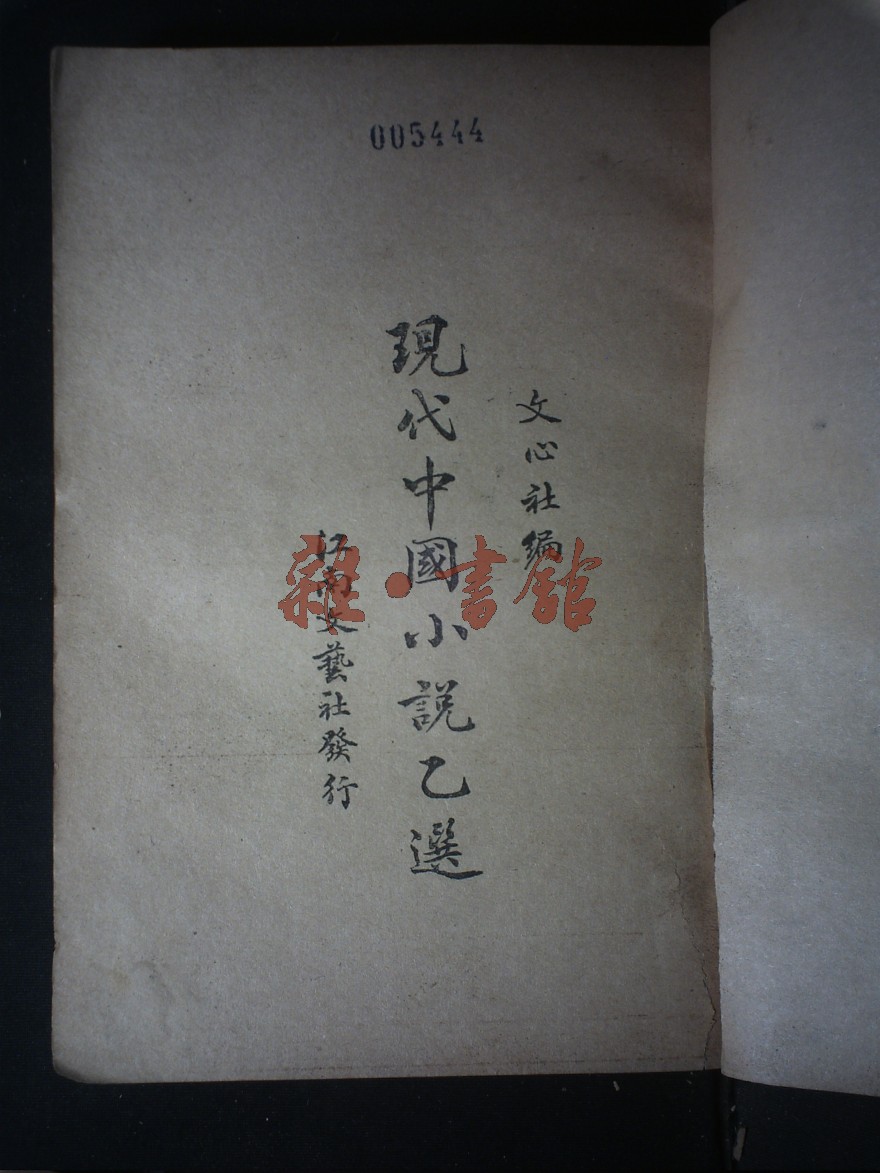 005444
文心社編
現代中國小説乙選
江南文藝社發行
雜·書館